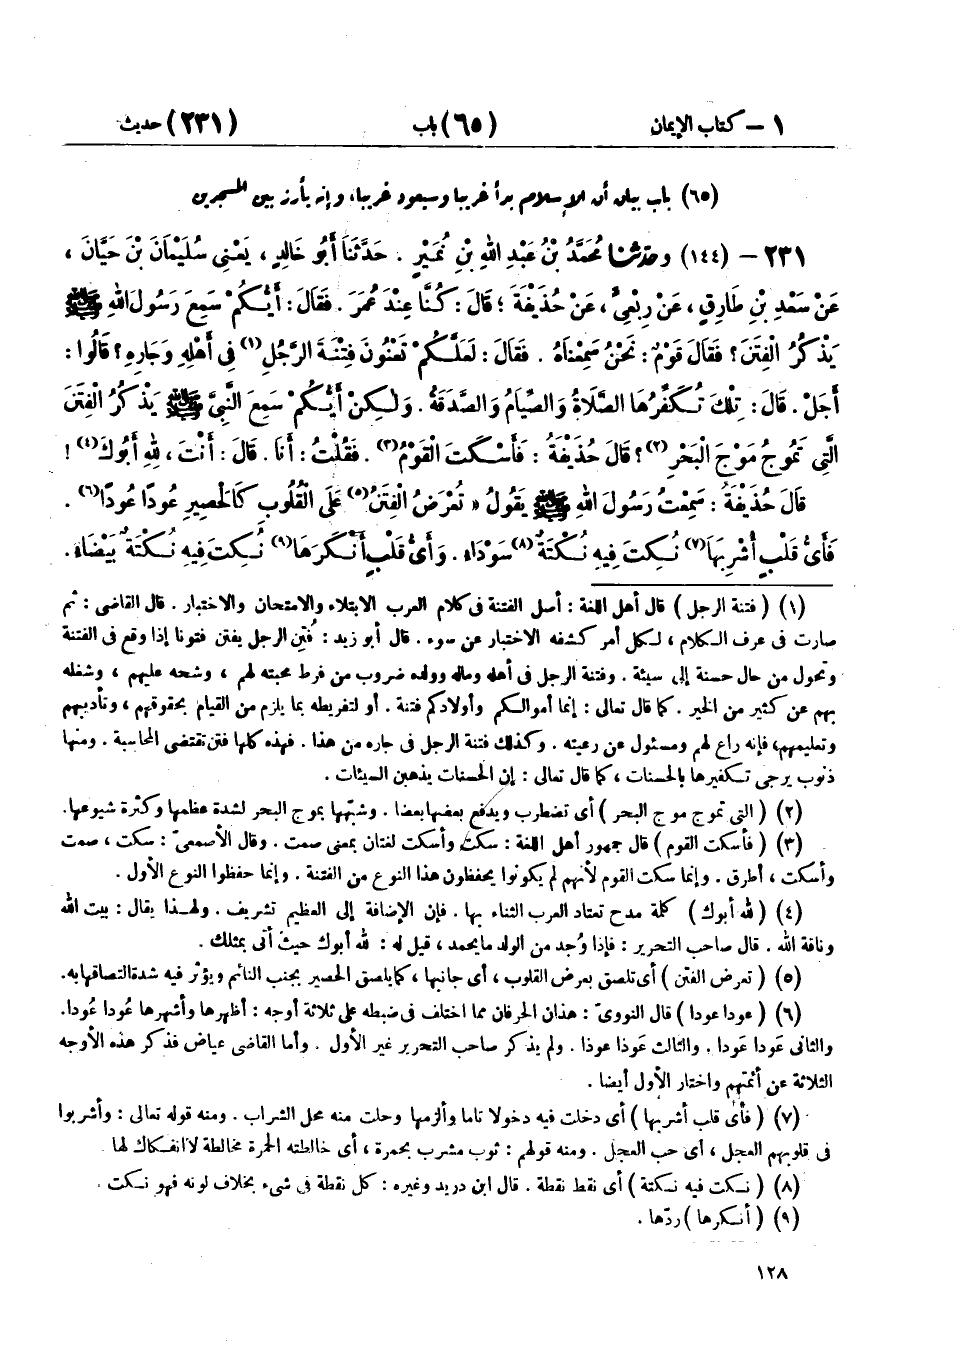 ١ – كتاب الإيمان (٦٥) باب (٢٣١) حديث
(٦٥) باب بيان أن الإسلام بدأ غريبا وسيعود غريبا، وإنه يأرز بين المسجدين
٢٣١ – (١٤٤) وحدثنا مُحَمَّدُ بْنُ عَبْدِ اللهِ بْنِ نُمَيْرٍ . حَدَّثَنَا أَبُو خَالِدٍ ، يَعْنِي سُلَيْمَانَ بْنَ حَيَّانَ ،
عَنْ سَعْدِ بْنِ طَارِقٍ ، عَنْ رِبْعِيٍّ ، عَنْ حُذَيْفَةَ ؛ قَالَ : كُنَّا عِنْدَ عُمَرَ . فَقَالَ : أَيُّكُمْ سَمِعَ رَسُولَ اللهِ ﷺ
يَذْكُرُ الْفِتَنَ ؟ فَقَالَ قَوْمٌ : نَحْنُ سَمِعْنَاهُ . فَقَالَ : لَعَلَّكُمْ تَعْنُونَ فِتْنَةَ الرَّجُلِ(١) فِي أَهْلِهِ وَجَارِهِ ؟ قَالُوا :
أَجَلْ . قَالَ : تِلْكَ تُكَفِّرُهَا الصَّلَاةُ وَالصِّيَامُ وَالصَّدَقَةُ . وَلَكِنْ أَيُّكُمْ سَمِعَ النَّبِيَّ ﷺ يَذْكُرُ الْفِتَنَ
الَّتِي تَمُوجُ مَوْجَ الْبَحْرِ(٢) ؟ قَالَ حُذَيْفَةُ : فَأَسْكَتَ الْقَوْمُ(٣) . فَقُلْتُ : أَنَا . قَالَ : أَنْتَ ، لِلهِ أَبُوكَ(٤) !
قَالَ حُذَيْفَةُ : سَمِعْتُ رَسُولَ اللهِ ﷺ يَقُولُ « تُعْرَضُ الْفِتَنُ(٥) عَلَى الْقُلُوبِ كَالْحَصِيرِ عُودًا عُودًا(٦) .
فَأَىُّ قَلْبٍ أُشْرِبَهَا(٧) نُكِتَ فِيهِ نُكْتَةٌ(٨) سَوْدَاء . وَأَىُّ قَلْبٍ أَنْكَرَهَا(٩) نُكِتَ فِيهِ نُكْتَةٌ بَيْضَاءُ .
(١) ( فتنة الرجل ) قال أهل اللغة : أصل الفتنة فى كلام العرب الابتلاء والامتحان والاختبار . قال القاضى : ثم
صارت فى عرف الكلام ، لكل أمر كشفه الاختبار عن سوء . قال أبو زيد : فُتِن الرجل يفتن فتونا إذا وقع فى الفتنة
وتحول من حال حسنة إلى سيئة . وفتنة الرجل فى أهله وماله وولده ضروب من فرط محبته لهم ، وشحه عليهم ، وشغله
بهم عن كثير من الخير . كما قال تعالى : إنما أموالكم وأولادكم فتنة . أو لتفريطه بما يلزم من القيام بحقوقهم ، وتأديبهم
وتعليمهم، فإنه راع لهم ومسئول عن رعيته . وكذلك فتنة الرجل فى جاره من هذا . فهذه كلها فتن تقتضى المحاسبة . ومنها
ذنوب يرجى تكفيرها بالحسنات ، كما قال تعالى : إن الحسنات يذهبن السيئات .
(٢) ( التى تموج موج البحر ) أى تضطرب ويدفع بعضها بعضا . وشبهها بموج البحر لشدة عظمها وكثرة شيوعها.
(٣) ( فأسكت القوم ) قال جمهور أهل اللغة : سكت وأسكت لغتان بمعنى صمت . وقال الأصمعىّ : سكت ، صمت
وأسكت ، أطرق . وإنما سكت القوم لأنهم لم يكونوا يحفظون هذا النوع من الفتنة . وإنما حفظوا النوع الأول .
(٤) ( لله أبوك ) كلمة مدح تعتاد العرب الثناء بها . فإن الإضافة إلى العظيم تشريف . ولهذا يقال : بيت الله
وناقة الله . قال صاحب التحرير : فإذا وُجد من الولد ما يحمد ، قيل له : لله أبوك حيث أتى بمثلك .
(٥) ( تعرض الفتن ) أى تلصق بعرض القلوب ، أى جانبها ، كما يلصق الحصير بجنب النائم ويؤثر فيه شدة التصاقها به.
(٦) ( عودا عودا ) قال النووىّ : هذان الحرفان مما اختلف فى ضبطه على ثلاثة أوجه : أظهرها وأشهرها عُودا عُودا.
والثانى عَودا عَودا . والثالث عَوذا عوذا . ولم يذكر صاحب التحرير غير الأول . وأما القاضى عياض فذكر هذه الأوجه
الثلاثة عن أئمتهم واختار الأول أيضا .
(٧) ( فأى قلب أشربها ) أى دخلت فيه دخولا تاما وألزمها وحلت منه محل الشراب . ومنه قوله تعالى : وأشربوا
فى قلوبهم العجل ، أى حب العجل . ومنه قولهم : ثوب مشرب بحمرة ، أى خالطته الحمرة مخالطة لا انفكاك لها .
(٨) ( نكت فيه نكتة ) أى نقط نقطة . قال ابن دريد وغيره : كل نقطة فى شىء بخلاف لونه فهو نكت .
(٩) ( أنكرها ) ردّها .
١٢٨